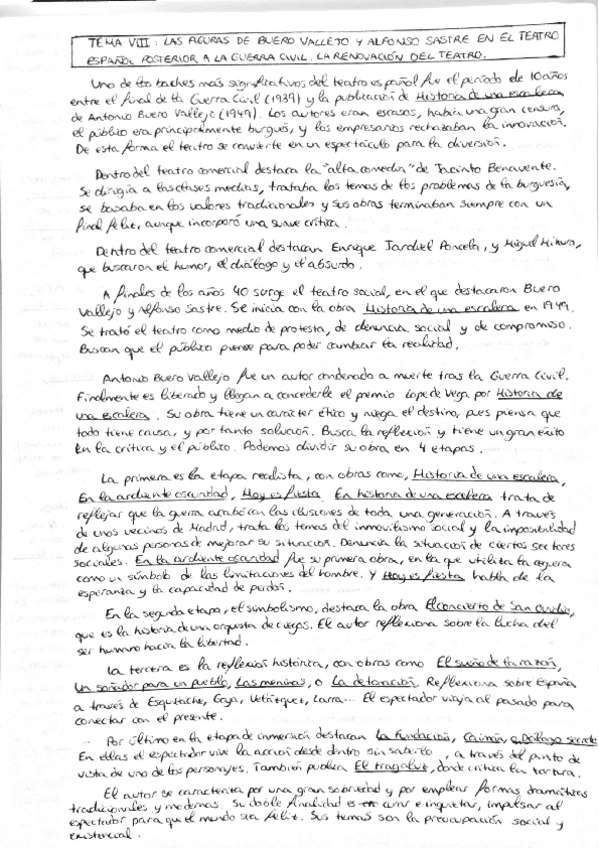 TEMA VIII: LAS FIGURAS DE BUERO VALLEJO Y ALFONSO SASTRE EN EL TEATRO
ESPAÑOL POSTERIOR A LA GUERRA CIVIL. LA RENOVACIÓN DEL TEATRO.
Uno de los baches más significativos del teatro español fue el período de 10 años
entre el final de la Guerra Civil (1939) y la publicación de Historia de una escalera
de Antonio Buero Vallejo (1949). Los autores eran escasos, había una gran censura,
el público era principalmente burgués, y los empresarios rechazaban la innovación.
De esta forma el teatro se convierte en un espectáculo para la diversión.
Dentro del teatro comercial destaca la "alta comedia" de Jacinto Benavente.
Se dirigía a las clases medias, trataba los temas de los problemas de la burguesía,
se basaba en los valores tradicionales y sus obras terminaban siempre con un
final feliz, aunque incorporó una suave crítica.
Dentro del teatro comercial destacan Enrique Jardiel Poncela, y Miguel Mihura,
que buscaron el humor, el diálogo y el absurdo.
A finales de los años 40 surge el teatro social, en el que destacaron Buero
Vallejo y Alfonso Sastre. Se inicia con la obra Historia de una escalera en 1949.
Se trató el teatro como medio de protesta, de denuncia social y de compromiso.
Buscan que el público piense para poder cambiar la realidad.
Antonio Buero Vallejo fue un autor condenado a muerte tras la Guerra Civil.
Finalmente es liberado y llegan a concederle el premio Lope de Vega por Historia de
una escalera. Su obra tiene un carácter ético y niega el destino, pues piensa que
todo tiene causa, y por tanto solución. Busca la reflexión y tiene un gran éxito
en la crítica y el público. Podemos dividir su obra en 4 etapas.
La primera es la etapa realista, con obras como, Historia de una escalera,
En la ardiente oscuridad, Hoy es fiesta. En historia de una escalera trata de
reflejar que la guerra acabó con las ilusiones de toda una generación. A través
de unos vecinos de Madrid, trata los temas del inmovilismo social y la imposibilidad
de algunas personas de mejorar su situación. Denuncia la situación de ciertos sectores
sociales. En la ardiente oscuridad fue su primera obra, en la que utiliza la ceguera
como un símbolo de las limitaciones del hombre. Y Hoy es fiesta habla de la
esperanza y la capacidad de perdón.
En la segunda etapa, el simbolismo, destaca la obra El concierto de San Ovidio,
que es la historia de una orquesta de ciegos. El autor reflexiona sobre la lucha del
ser humano hacia la libertad.
La tercera es la reflexión histórica, con obras como El sueño de la razón,
Un soñador para un pueblo, Las meninas, o La detonación. Reflexiona sobre España
a través de Esquilache, Goya, Velázquez, Larra... El espectador viaja al pasado para
conectar con el presente.
Por último en la etapa de inmersión destacan La Fundación, Caimán o Diálogo secreto
En ellas el espectador vive la acción desde dentro sin saberlo, a través del punto de
vista de uno de los personajes. También publica El tragaluz, donde critica la tortura.
El autor se caracteriza por una gran sobriedad y por emplear formas dramáticas
tradicionales y modernas. Su doble finalidad es curar e inquietar, impulsar al
espectador para que el mundo sea feliz. Sus temas son la preocupación social y
existencial.